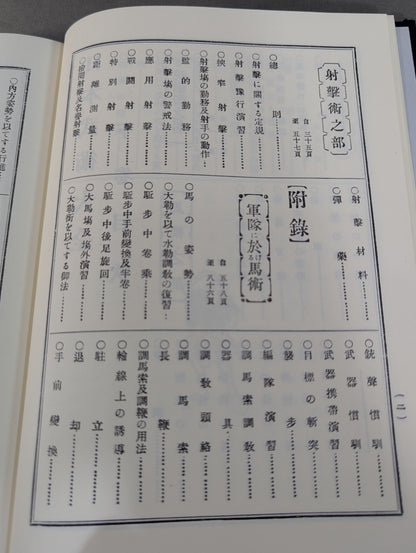 射擊術之部
自三十五頁
至五十七頁
○總則……
○射擊に關する定規……
○射擊豫行演習……
○狹窄射擊……
○射擊場の勤務及射手の動作……
○監的勤務……
○射擊場の警戒法……
○應用射擊……
○戰鬪射擊……
○特別射擊……
○距離測量……
○檢閱射擊及名譽射擊……
○射擊材料……
○彈藥……
【附錄】
軍隊に於ける馬術
自五十八頁
至八十六頁
○馬の姿勢……
○大勒を以て水勒調敎の復習……
○駈步中卷乘……
○駈步中手前變換及半卷……
○駈步中後足旋回……
○大馬場及場外演習……
○大勒銜を以てする御法……
○銃聲慣馴……
○武器慣馴……
○武器携帶演習……
○目標の斬突……
○襲步……
○編隊演習……
○調馬索調敎……
○器具……
○調敎頭絡……
○調馬索……
○長鞭……
○調馬索及調鞭の用法……
○輪線上の誘導……
○駐立……
○退却……
○手前變換……
(二)
○內方姿勢を以てする行進